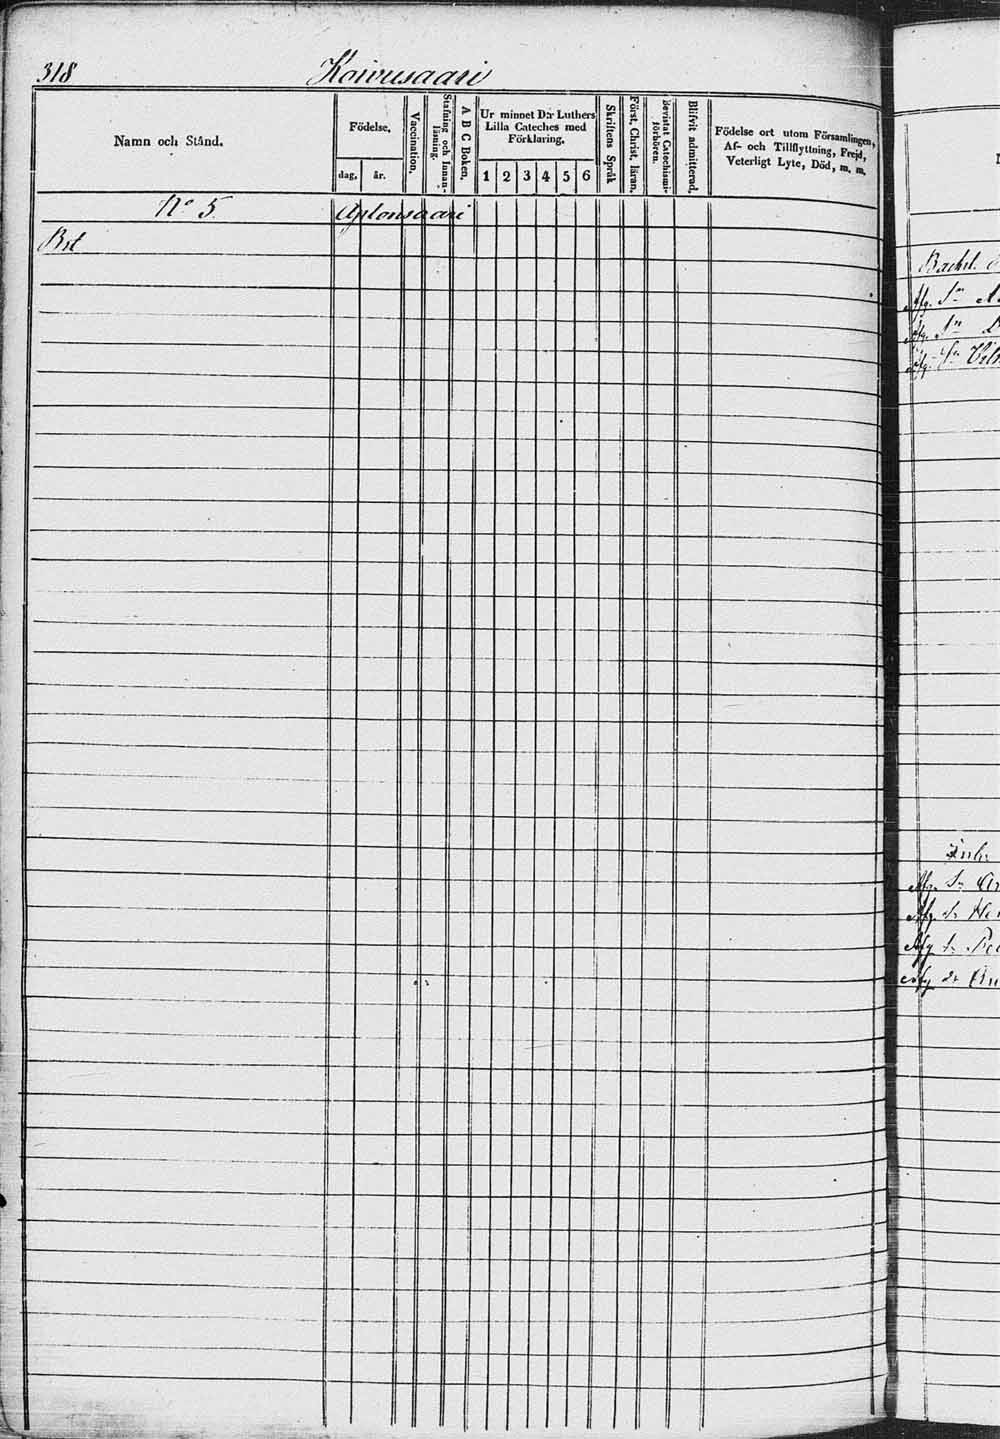 318 Koivusaari
Namn och Stånd.
Födelse,
dag, år.
Vaccination,
Stafning och Innan-
läsning.
A B C Boken.
Ur minnet D:r Luthers
Lilla Cateches med
Förklaring,
1 2 3 4 5 6
Skriftens Språk
Först, Christ, läran,
Bevistat Catechismi-
förhören.
Blifvit admitterad,
Födelse ort utom Församlingen,
Af- och Tillflyttning, Frejd,
Veterligt Lyte, Död, m. m.
No 5 Aplonsaari
Bst
Bachst.
Afg. Sn
Afg. Sn
Afg. Sn
Inh.
Afg. Sn
Afg.
Afg
Afg